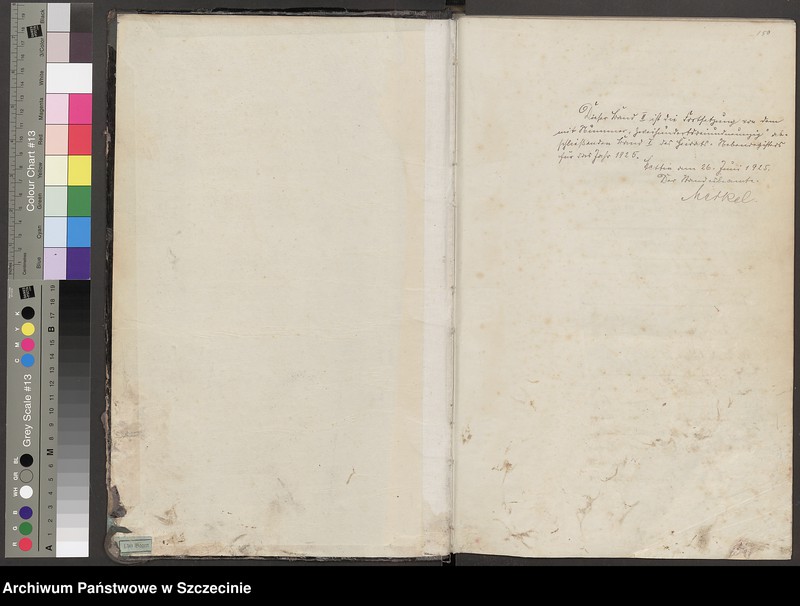 150
Dieser Band II ist die Fortsetzung von dem
mit Nummer zweihundertneunundneunzig ab-
schließenden Band I des Heirats-Nebenregisters
für das Jahr 1925.
am 26. Juni 1925.
Der Standesbeamte.
Colour Chart #13
Blue
Cyan
Magenta
White
3/Color
Black
Grey Scale #13
C M Y K
R G B WH GR BL
A 1 2 3 4 5 6 M 8 9 10 11 12 13 14 15 B 17 18 19
Archiwum Państwowe w Szczecinie